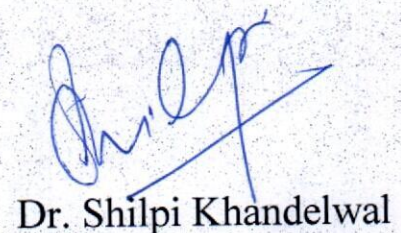 Shilpi
Dr. Shilpi Khandelwal